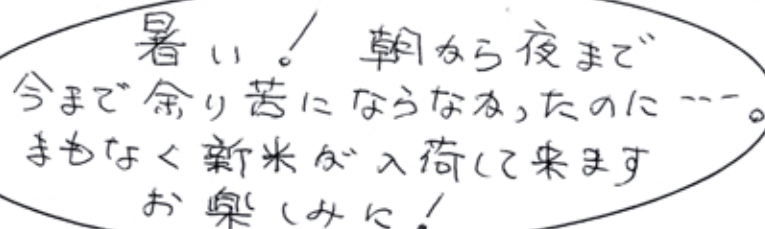 暑い! 朝から夜まで
今まで余り苦にならなかったのに---。
まもなく新米が入荷して来ます
お楽しみに!